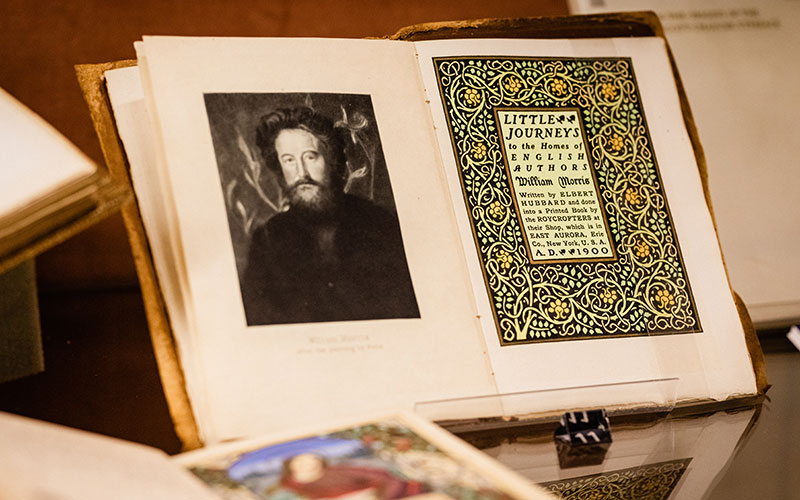 William Morris
LITTLE
JOURNEYS
to the Homes of
ENGLISH
AUTHORS
William Morris
Written by ELBERT
HUBBARD and done
into a Printed Book by
the ROYCROFTERS at
their Shop, which is in
EAST AURORA, Erie
Co., New York, U. S. A.
A. D. 1900